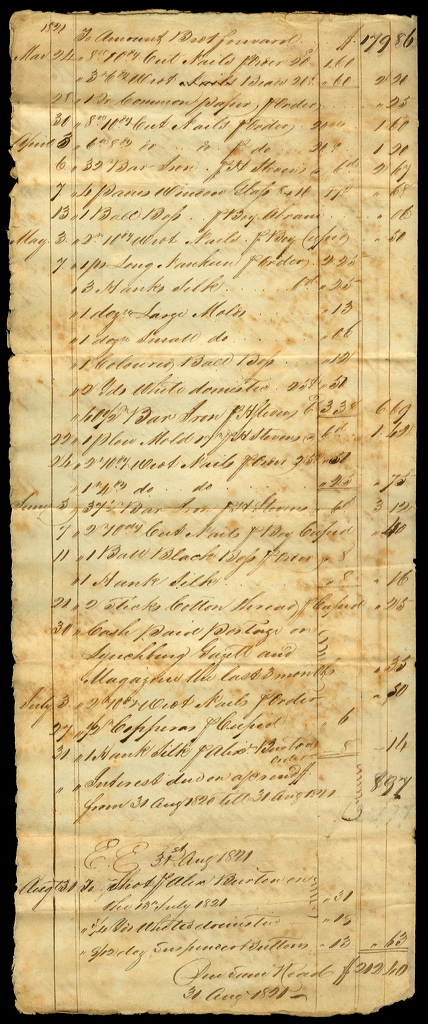 1821 To Amount Brot forward $ 179 86
Mar 24 " 8 lb 10d Cut Nails 20 1.60
" 3 lb 6d Wrot Nails 20 " 60 2 20
28 " 1 Qr Common paper Order " 25
30 " 8 lb 10d Cut Nails Order 20 1 60
April 5 " 6 lb 8d do do 20 1 20
6 " 32 lb Bar Iron H Stevens 2 67
7 " 4 panes Window Glass " 68
13 " 1 Ball Bop Boy Abram " 06
May 3 " 2 lb 10d Wrot Nails Boy Cupid " 50
7 " 1 ps Long Nankeen Order 2 25
" 3 Hanks Silk " 25
" 1 dozn Large Molds " 13
" 1 dozn Small do " 06
" 1 Coloured Ball Bop " 12
" 2 Yds White domestic 25 " 50
" 40 1/2 lb Bar Iron H Stevens 3 38 6 69
22 " 1 plow Mold H Stevens 1 42
24 " 2 lb 10d Wrot Nails 25 " 50
" 1 lb 4d do do " 25 " 75
June 5 " 37 1/2 lb Bar Iron H Stevens 3 12
7 " 2 lb 10d Cut Nails Boy Cupid " 40
11 " 1 Ball Black Bop " 8
" 1 Hank Silk " 8 " 16
21 " 2 Sticks Cotton thread Cupid " 25
30 " Cash Paid Postage on
Lynchburg Gazett and
Magazine the last 3 months " 35
July 3 " 2 lb 10d Wrot Nails Order " 50
27 " 1/2 lb Copperas Cupid " 6
31 " 1 Hank Silk Alex Burton
order " 8 " 14
" " Interest due on
from 31 Aug 1820 till 31 Aug 1821 8 97
E E 31st Aug 1821
Augt 30 To Shot Alex Burton
the 18 July 1821 " 31
" 3/4 Yd White domestic " 19
" 2/12 doz Suspender Buttons " 13 " 63
$ 202 40
31 Aug 1821